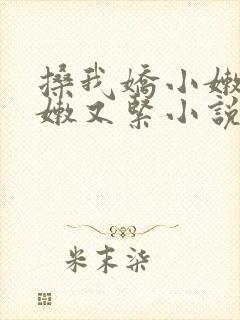 搡我嬌小嫩
嫩又緊小說
米末柒